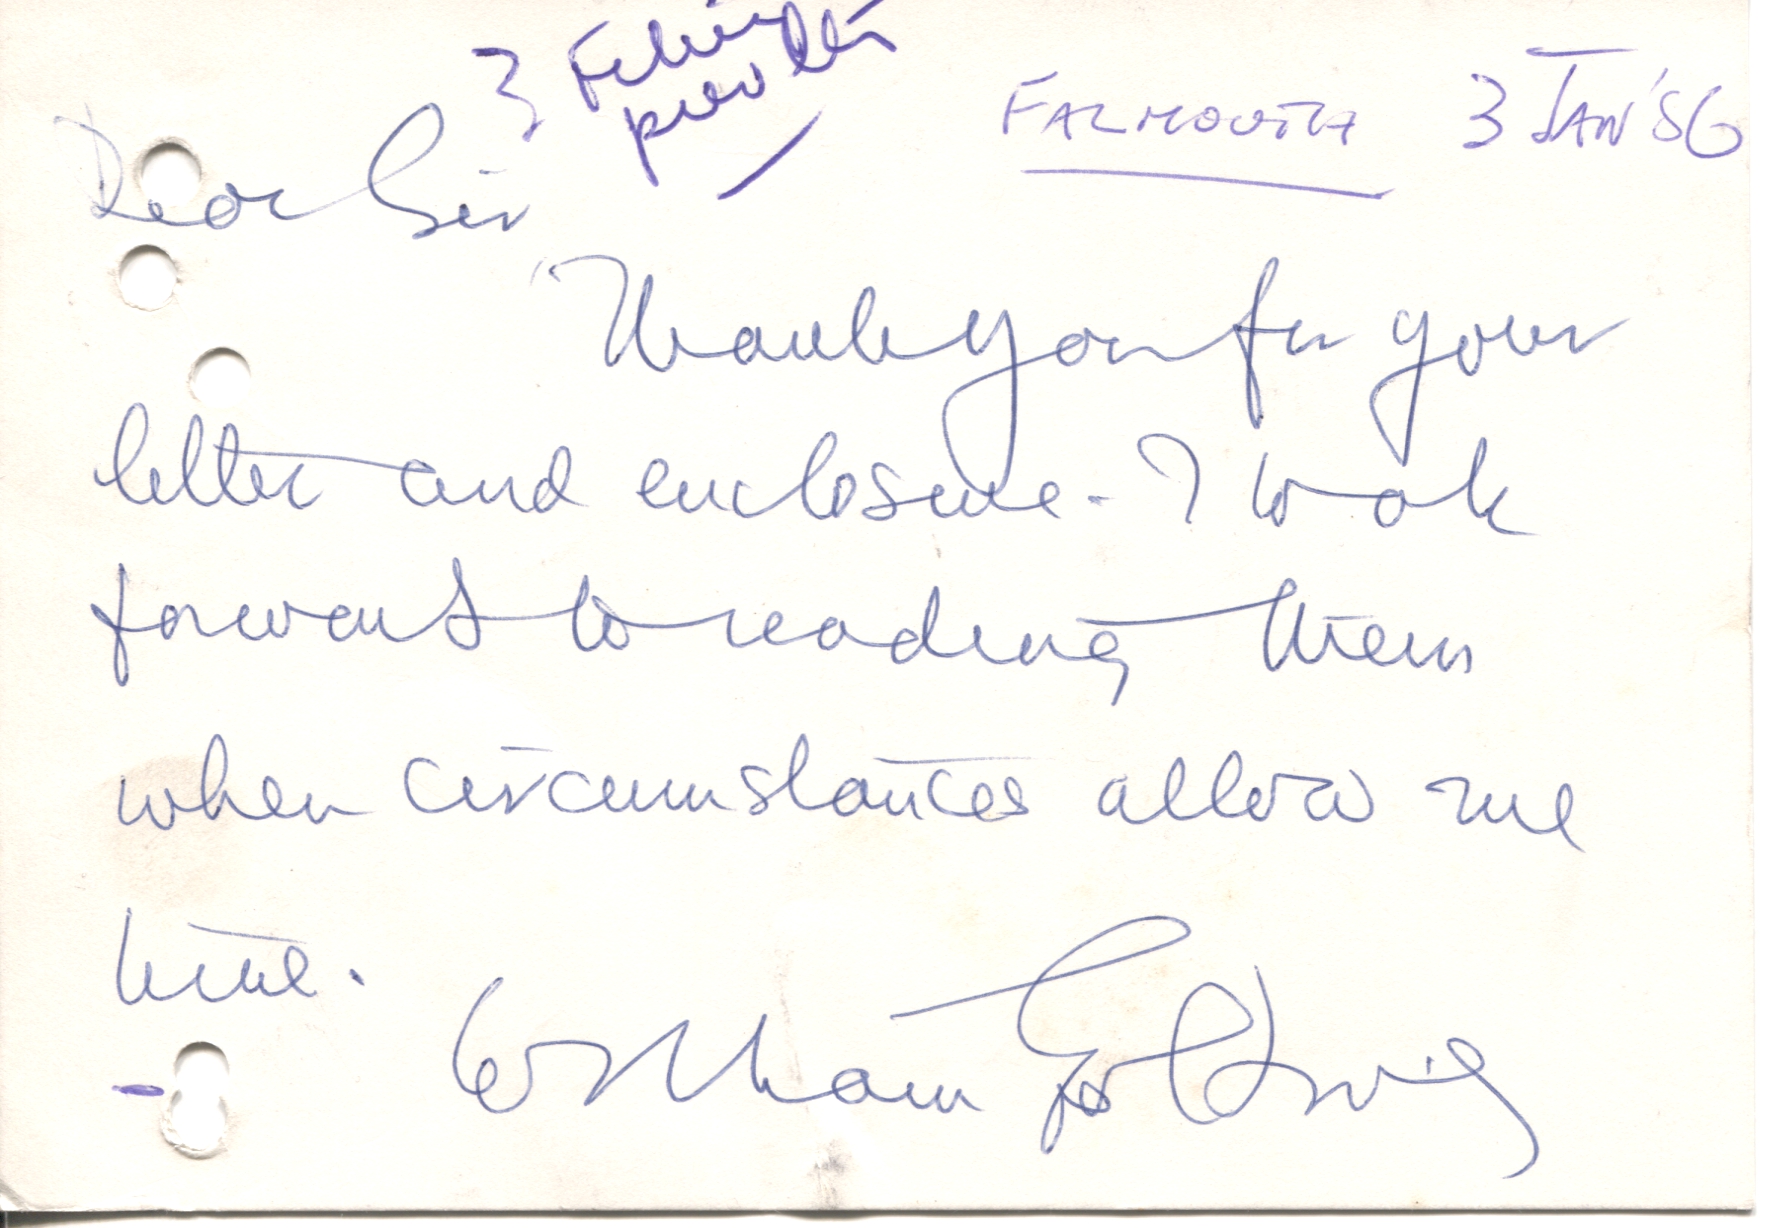 FALMOUTH 3 JAN '86
Dear Sir
Thank you for your
letter and enclosure - I look
forward to reading them
when circumstances allow me
time.
William Golding